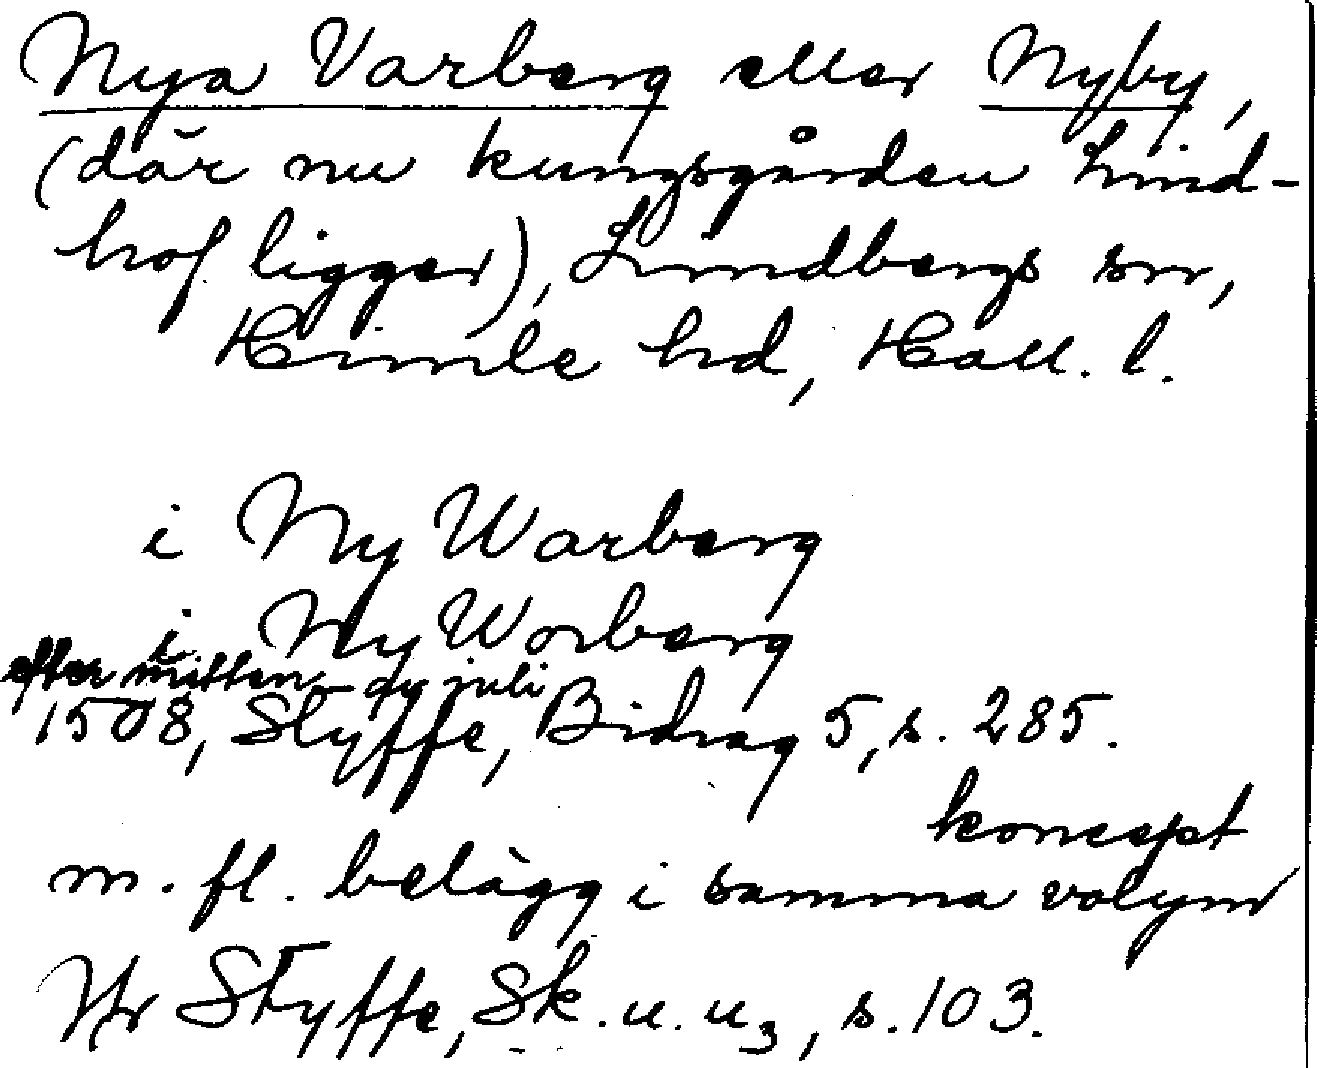 Nya Varberg eller Nyby,
(där nu kungsgården Lind-
hof ligger), Lindbergs sn,
Himle hd, Hall. l.
i Ny Warberg
i Ny Worberg
efter mitten av juli
1508, Styffe, Bidrag 5, s. 285.
koncept
m. fl. belägg i samma volym
Jfr Styffe, Sk. u. u3, s. 103.